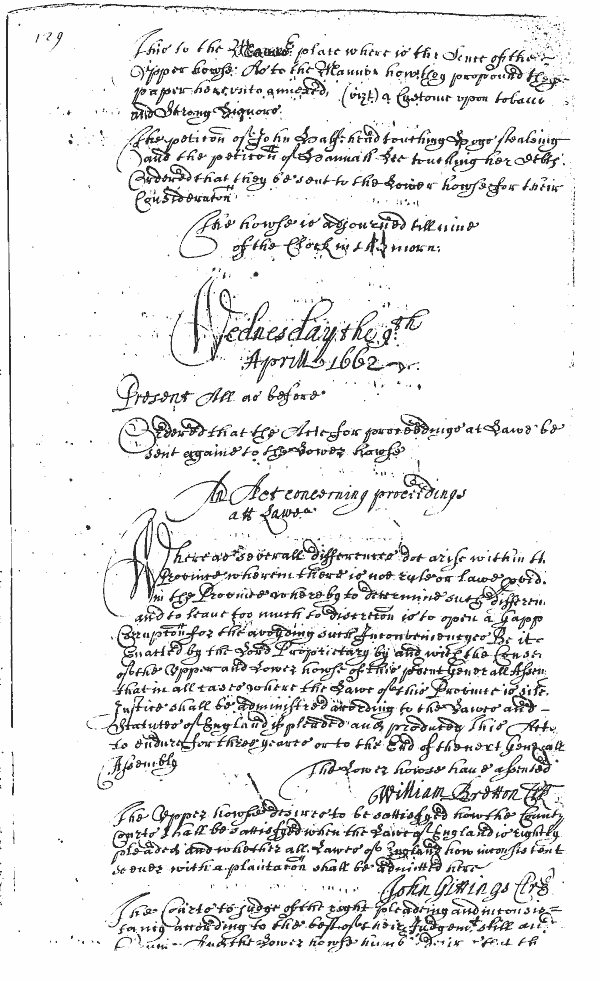 129
This is the place where is the Sence of the
Upper howse: As to the Manner how they propound the
paper hereunto annexed, (vizt) a Custome upon tobacco
and Strong Liquors
The peticon of John Halfehead touching Hogg stealing
and the peticon of Hannah Lee touching her debts
Ordered that they be sent to the Lower howse for their
Consideracon
The howse is adjourned till nine
of the Clock in the morn:
Wednesday the 9th
Aprill 1662
Present All as before
Ordered that the Acte for proceedings at Lawe be
sent againe to the Lower howse
An Act concerning proceedings
att Lawe
Whereas severall differences doe arise within th
Province wherein there is noe rule or lawe prvid.
in the Province whereby to determine such differen
and to leave too much to discretion is to open a gapp
Corupcon for the avoyding such Inconveniencyes Be it
Enacted by the Lord Proprietary by and with the Conse
of the Upper and Lower howse of this prsent Generall Assem
that in all cases where the Lawe of this Province is sile
Justice shall be administred according to the Lawes and
Statutes of England if pleaded and produced This Act
to endure for three yeares or to the End of the next Generall
Assembly
The Lower howse have assented
William Bretton Clk
The Upper howse desires to be satisfyed how the County
Courts shall be satisfyed when the Lawe of England is rightly
pleaded and whether all Lawes of England how inconsistent
soever with a plantacon shall be admitted here
John Gittings Clk
The Courts to Judge of the right pleading and inconsis=
tancy according to the best of their Judgemt still and
And the Lower howse